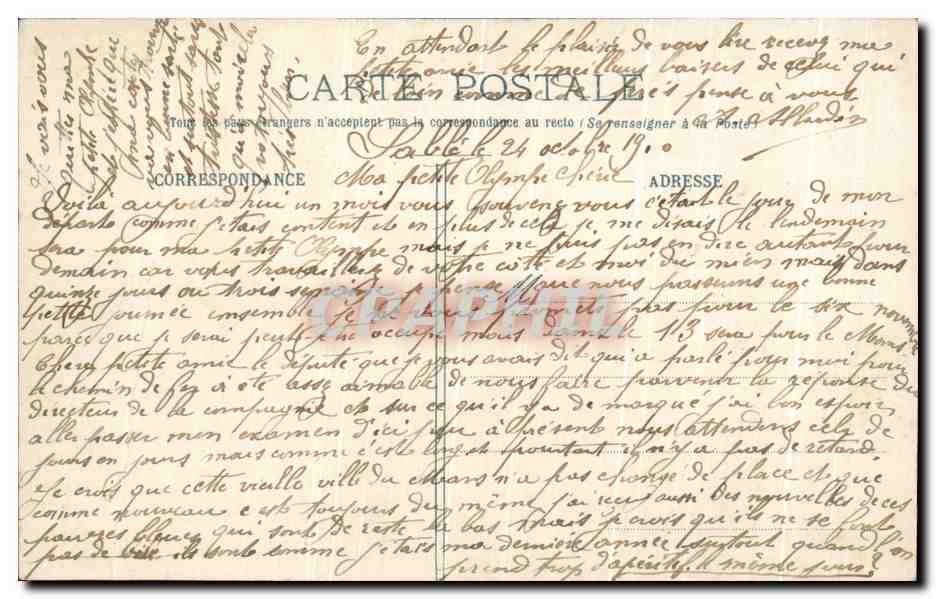 En attendant le plaisir de vous lire recevez ma
petite amie les meilleurs baisers de celui qui
de loin comme de près pense à vous
CARTE POSTALE
Tous les pays étrangers n'acceptent pas la correspondance au recto (Se renseigner à la Poste)
Sablé le 24 octobre 19
CORRESPONDANCE
ADRESSE
Ma petite Olympe chérie
Voilà aujourd'hui un mois vous souvenez vous c'était le jour de mon
départ comme j'étais content et en plus de cela je me disais le lendemain
sera pour ma petite Olympe mais je ne puis pas en dire autant pour
demain car vous travaillez de votre côté et moi du mien mais dans
quinze jours ou trois semaines je pense que nous passerons une bonne
petite journée ensemble je ne vous promets pas pour le six novembre
parce que je serai peut être occupé mais dim le 13 sera pour le Mans
Chère petite amie le député que je vous avais dit qui a parlé pour moi pour
le chemin de fer a été assez aimable de nous faire parvenir la réponse du
directeur de la compagnie et sur ce qu'il y a de marqué j'ai bon espoir
aller passer mon examen d'ici peu à présent nous attendons cela de
jours en jours mais comme c'est long et pourtant il n'y a pas de retard
Je crois que cette vieille ville du Mans n'a pas changé de place et que
comme nouveau c'est toujours du même j'ai reçu aussi des nouvelles de ces
pauvres bleus qui sont de reste la bas mais je crois qu'ils ne se font
pas de bile ils sont comme j'étais ma dernière année surtout quand l'on
prend trop d'apéritifs le même jour
je vais vous
quitter ma
petite Olympe
CPAPHIL